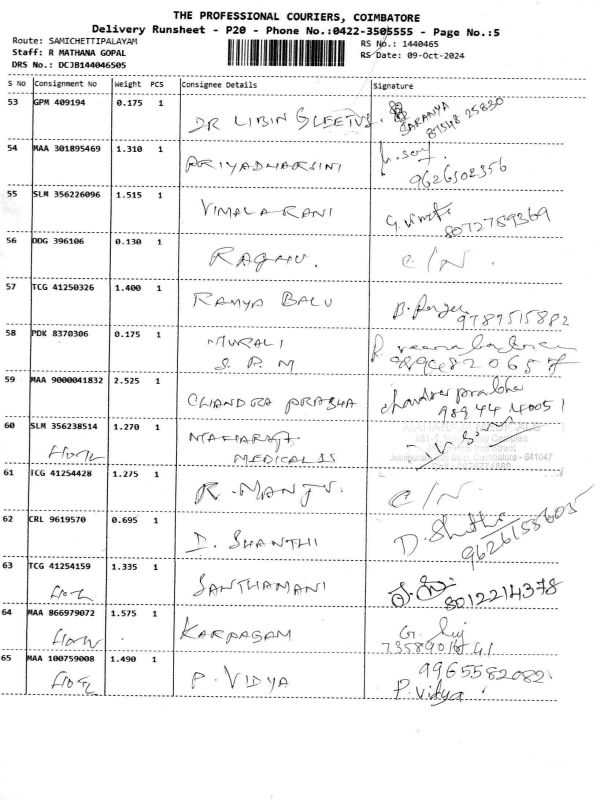 THE PROFESSIONAL COURIERS, COIMBATORE
Delivery Runsheet - P20 - Phone No.:0422-3505555 - Page No.:5
Route: SAMICHETTIPALAYAM
RS No.: 1440465
Staff: R MATHANA GOPAL
RS Date: 09-Oct-2024
DRS No.: DCJB144046505
S No Consignment No Weight PCS Consignee Details Signature
53 GPM 409194 0.175 1 DR LIBIN GLEETUS. SARANYA
81548 25830
54 MAA 301895469 1.310 1 PRIYADHARSINI
9626502356
55 SLM 356226096 1.515 1 VIMALA RANI
8072789369
56 DDG 396106 0.130 1 RAGHU. C/N.
57 TCG 41250326 1.400 1 RAMYA BALU
9789515882
58 PDK 8370306 0.175 1 MURALI
S.P.M
9894820657
59 MAA 9000041832 2.525 1 CHANDRA PRABHA chandra prabha
98944 40051
60 SLM 356238514 1.270 1 MAHARAJ
MEDICALSS
Street
Coimbatore - 641047
61 TCG 41254428 1.275 1 R. MANJU. C/N.
62 CRL 9619570 0.695 1 D. SHANTHI D. Shantha
9626155603
63 TCG 41254159 1.335 1 SANTHAMANI
8012214378
64 MAA 866979072 1.575 1 KARPAGAM
65 MAA 100759008 1.490 1 P. VIDYA 9965582082
P. Vidya